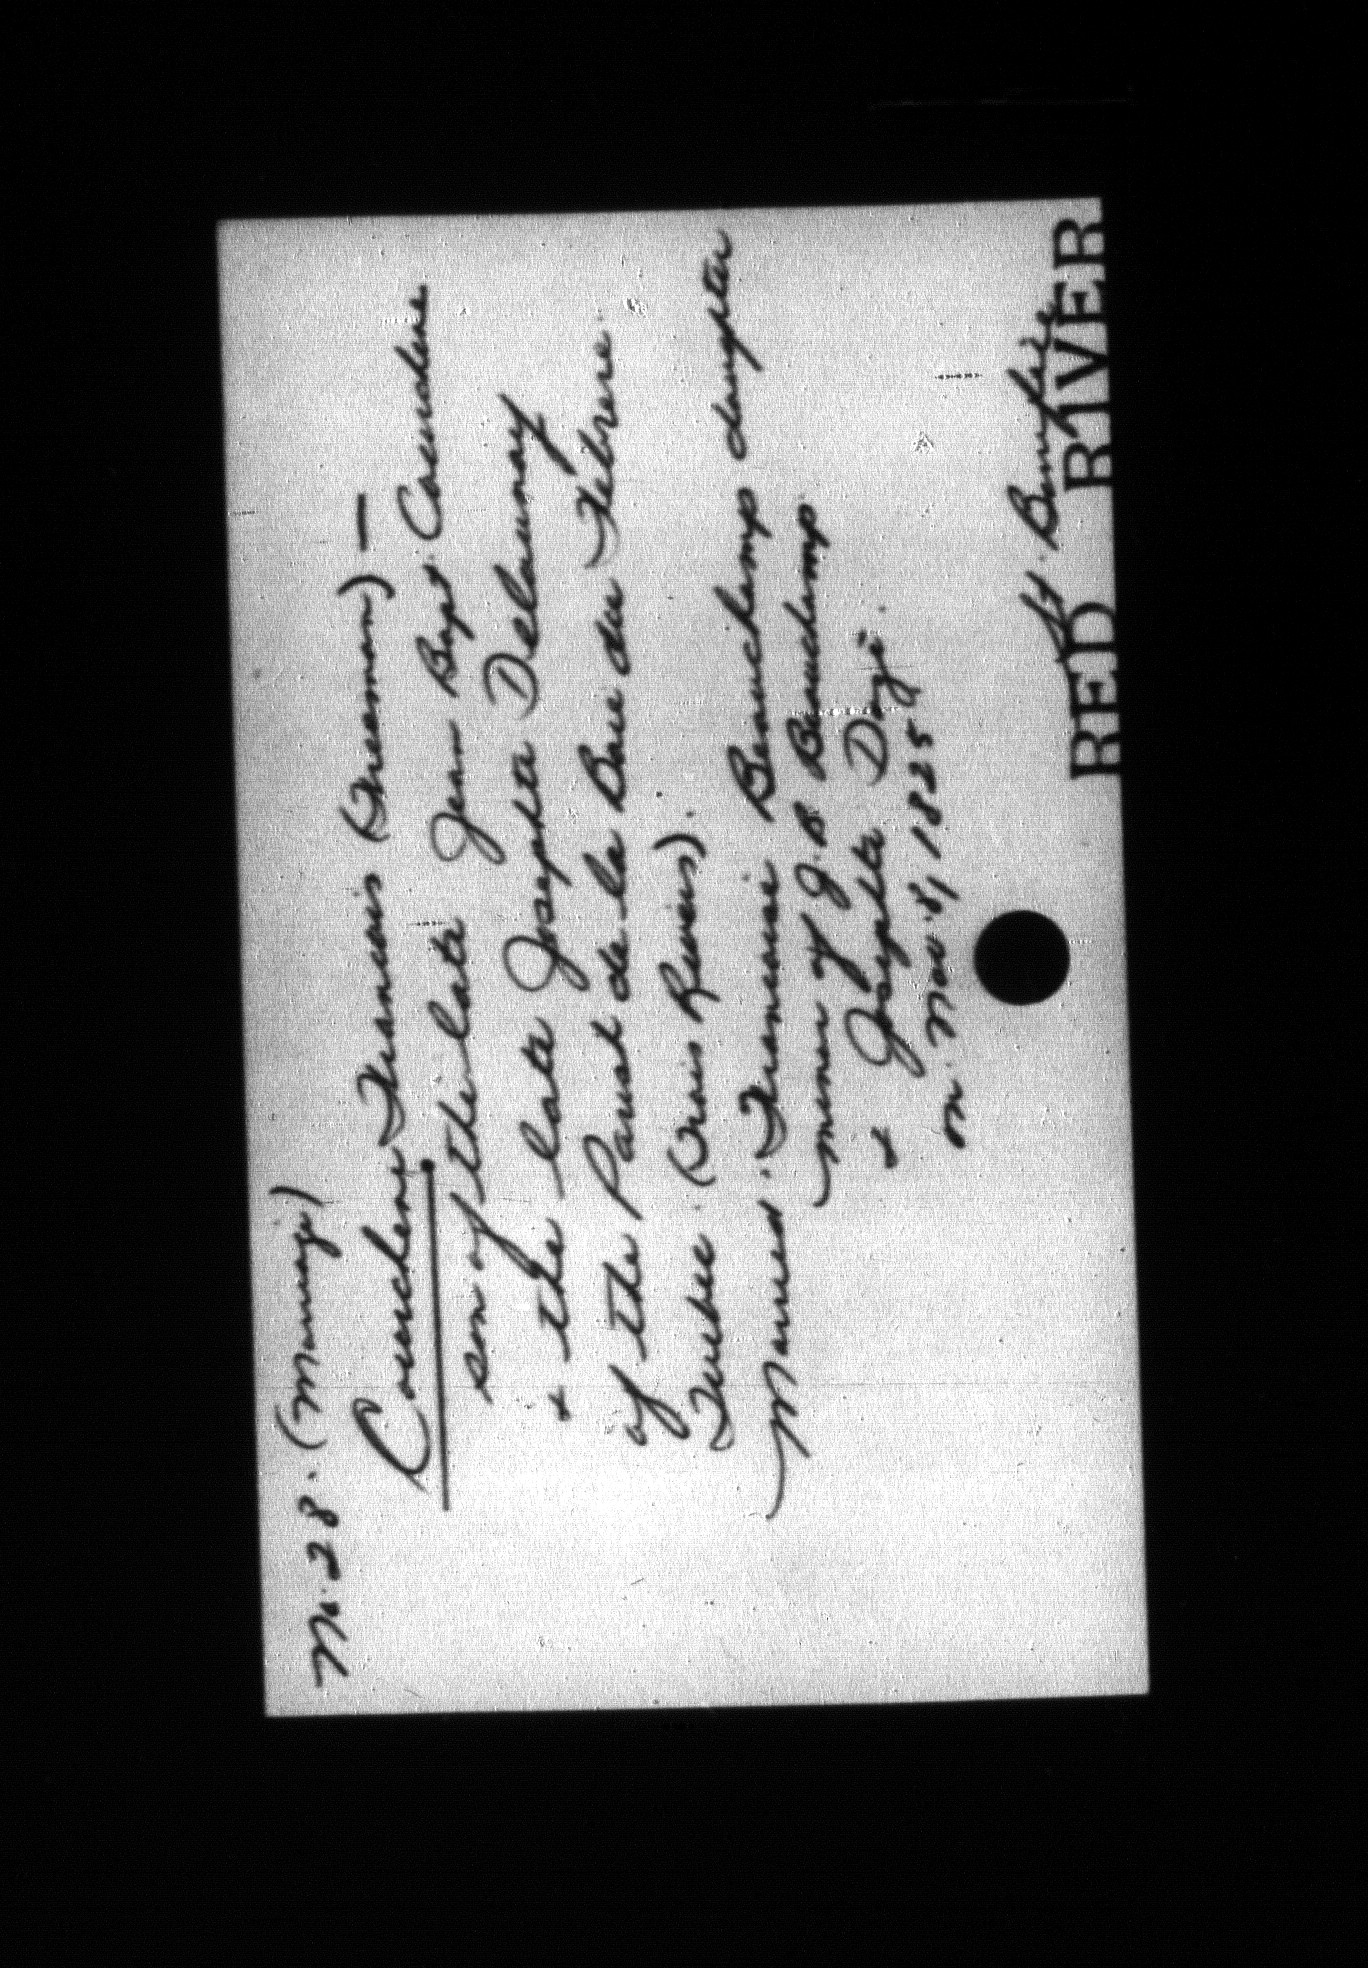 M. 28. (Marriage)
Courchene Francois (Freeman) —
son of the late Jean Bapt. Courchene
+ the late Josephte Delaunay
of the Parish de la Baie du Febvre
Quebec (Trois Rivieres).
Married. Francoise Beauchamp daughter
minor of J. B Beauchamp
+ Josephte Dazé.
m. Nov. 8, 1825
St. Boniface
RED RIVER